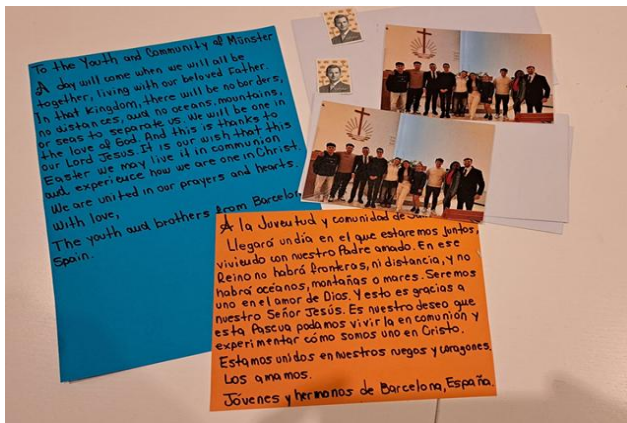 To the Youth and Community of Münster
A day will come when we will all be
together, living with our beloved Father.
In that Kingdom, there will be no borders,
no distances, and no oceans, mountains,
or seas to separate us. We will be one in
the love of God. And this is thanks to
our Lord Jesus. It is our wish that this
Easter we may live it in communion
and experience how we are one in Christ.
We are united in our prayers and hearts.
With love,
The youth and brothers from Barcelona
Spain.
A la Juventud y comunidad de
Llegará un día en el que estaremos juntos,
viviendo con nuestro Padre amado. En ese
Reino no habrá fronteras, ni distancia, y no
habrá océanos, montañas o mares. Seremos
uno en el amor de Dios. Y esto es gracias a
nuestro Señor Jesús. Es nuestro deseo que
esta Pascua podamos vivirla en comunión y
experimentar cómo somos uno en Cristo.
Estamos unidos en nuestros ruegos y corazones.
Los amamos.
Jóvenes y hermanos de Barcelona, España.